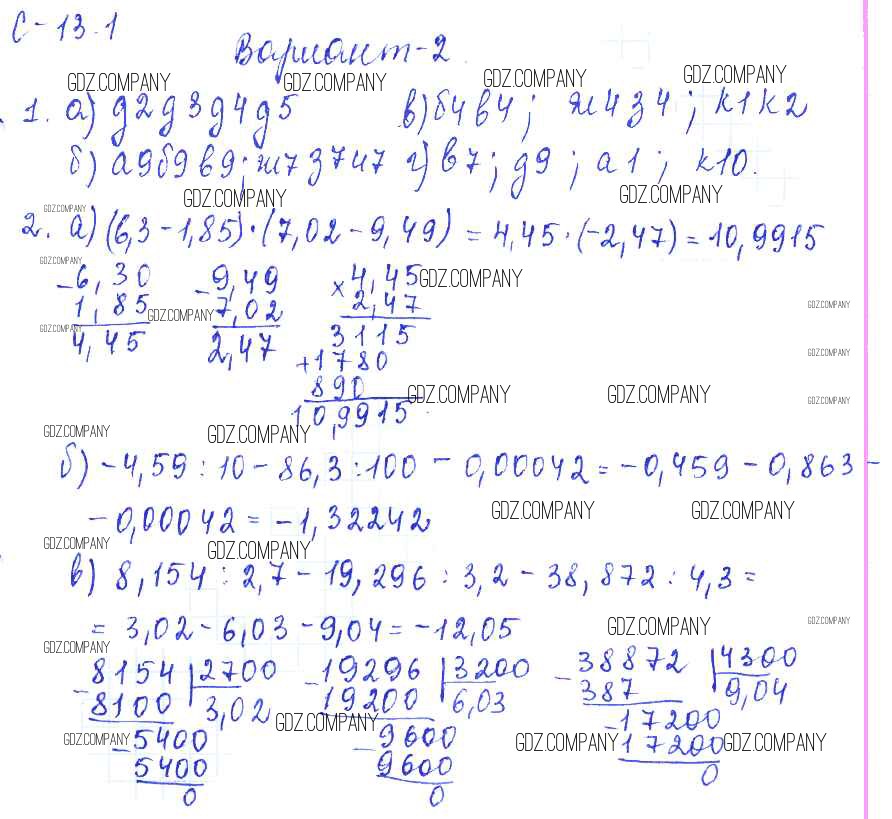 С-13.1
Вариант-2
GDZ.COMPANY GDZ.COMPANY GDZ.COMPANY GDZ.COMPANY
1. а) g2g3g4g5 в) б4в4; ж4з4; к1к2
б) а9б9в9; ж7з7и7 г) в7; g9; а1; к10.
GDZ.COMPANY GDZ.COMPANY GDZ.COMPANY
2. а) (6,3-1,85)·(7,02-9,49)=4,45·(-2,47)=10,9915
GDZ.COMPANY
-6,30 -9,49 ×4,45 GDZ.COMPANY
1,85 GDZ.COMPANY 7,02 2,47 GDZ.COMPANY
GDZ.COMPANY 4,45 2,47 3115
+1780 GDZ.COMPANY
890 GDZ.COMPANY GDZ.COMPANY GDZ.COMPANY
10,9915
GDZ.COMPANY GDZ.COMPANY
б) -4,59:10-86,3:100-0,00042=-0,459-0,863-
-0,00042=-1,32242 GDZ.COMPANY GDZ.COMPANY
GDZ.COMPANY GDZ.COMPANY
в) 8,154:2,7-19,296:3,2-38,872:4,3=
=3,02-6,03-9,04=-12,05 GDZ.COMPANY GDZ.COMPANY
GDZ.COMPANY
-8154 2700 -19296 3200 -38872 4300
8100 3,02 19200 6,03 387 9,04
GDZ.COMPANY -5400 GDZ.COMPANY -9600 -17200
5400 9600 GDZ.COMPANY 17200 GDZ.COMPANY
0 0 0